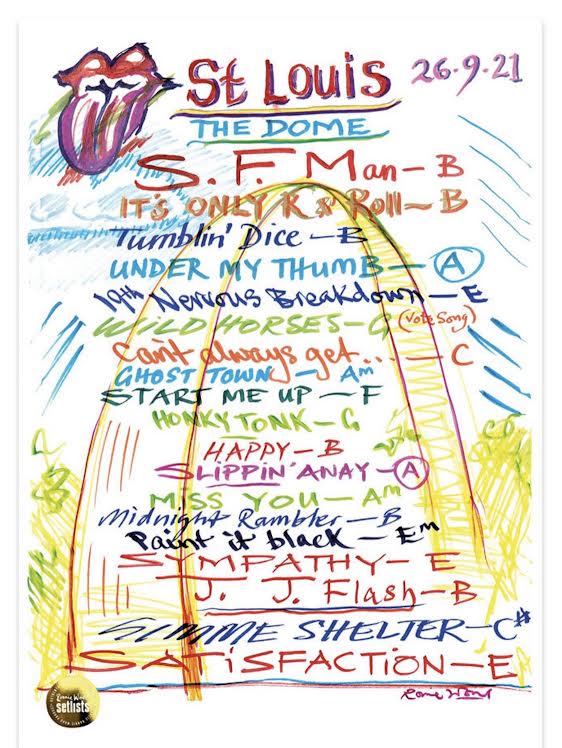 St Louis 26.9.21
THE DOME
S. F. Man - B
IT'S ONLY R & Roll - B
Tumblin' Dice - B
UNDER MY THUMB - A
19th Nervous Breakdown - E
WILD HORSES - G (Vote Song)
Can't always get... - C
GHOST TOWN - Am
START ME UP - F
HONKY TONK - G
HAPPY - B
SLIPPIN' AWAY - A
MISS YOU - Am
Midnight Rambler - B
Paint it black - Em
SYMPATHY - E
J. J. Flash - B
GIMME SHELTER - C#
SATiSFACTiON - E
Ronnie Wood
setlists